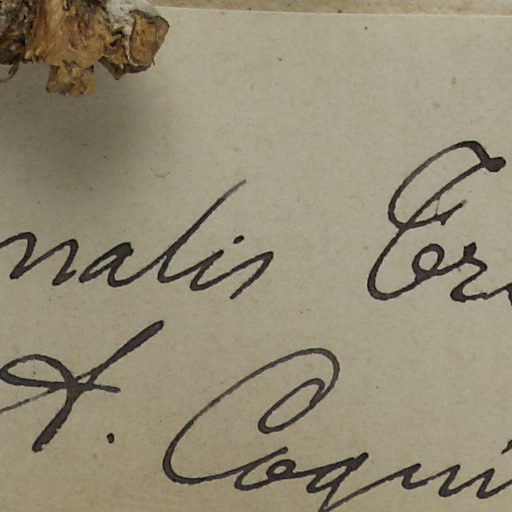 nalis Er
A. Coqui